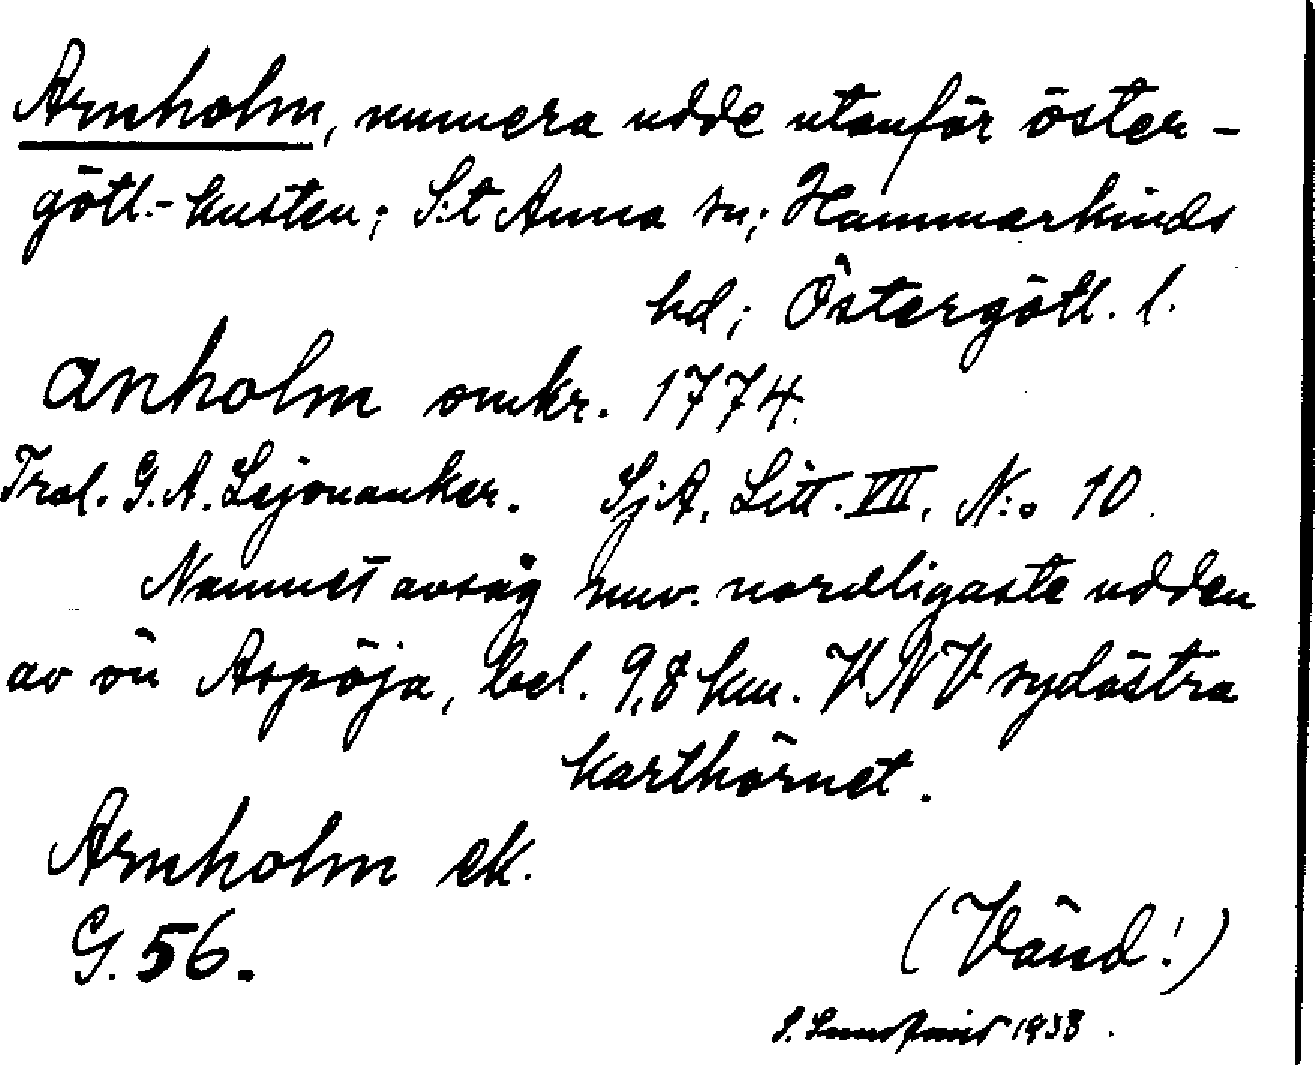 Arnholm, numera udde utanför öster-
götl.-kusten; S:t Anna sn; Hammarkinds
hd; Östergötl. l.
Anholm omkr. 1774.
Trol. G. A. Lejonanker. SjA, Litt. VII, N:o 10.
Namnet avsåg nuv. nordligaste udden
av ön Aspöja, bel. 9,8 km. VNV sydöstra
karthörnet.
Arnholm ek.
G. 56.
(Vänd!)
S. 1938.